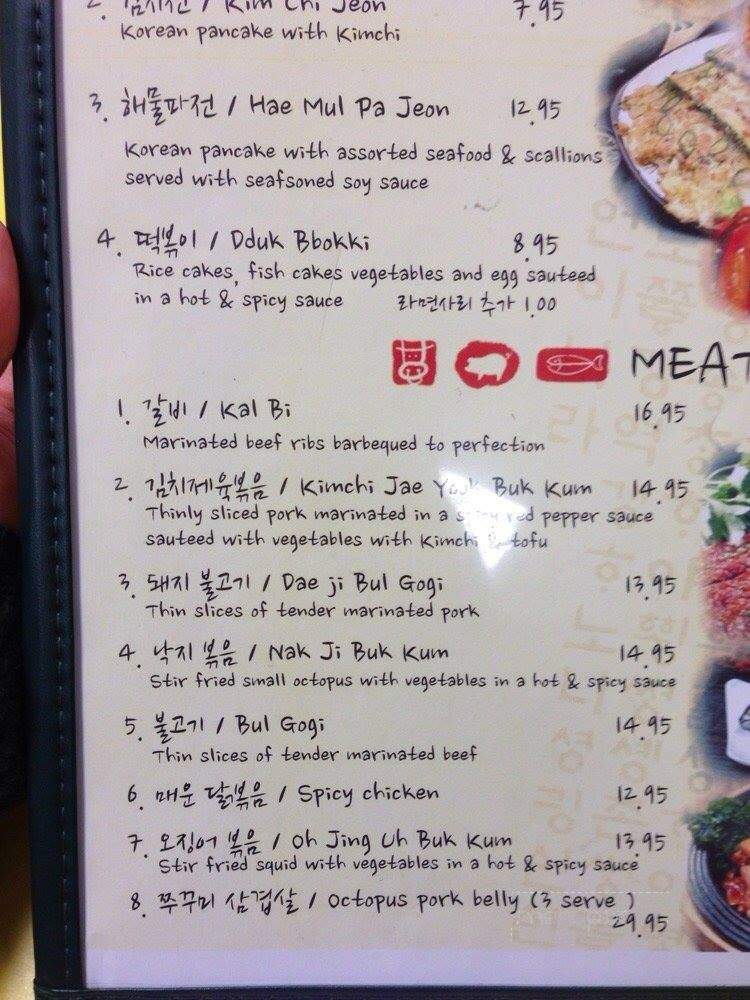 2. 김치전 / Kim Chi Jeon 7.95
Korean pancake with Kimchi
3. 해물파전 / Hae Mul Pa Jeon 12.95
Korean pancake with assorted seafood & scallions
served with seafsoned soy sauce
4. 떡볶이 / Dduk Bbokki 8.95
Rice cakes, fish cakes vegetables and egg sauteed
in a hot & spicy sauce 라면사리 추가 1.00
MEAT
1. 갈비 / Kal Bi 16.95
Marinated beef ribs barbequed to perfection
2. 김치제육볶음 / Kimchi Jae Yook Buk Kum 14.95
Thinly sliced pork marinated in a spicy red pepper sauce
sauteed with vegetables with Kimchi & tofu
3. 돼지 불고기 / Dae ji Bul Gogi 13.95
Thin slices of tender marinated pork
4. 낙지 볶음 / Nak Ji Buk Kum 14.95
Stir fried small octopus with vegetables in a hot & spicy sauce
5. 불고기 / Bul Gogi 14.95
Thin slices of tender marinated beef
6. 매운 닭볶음 / Spicy chicken 12.95
7. 오징어 볶음 / Oh Jing Uh Buk Kum 13.95
Stir fried squid with vegetables in a hot & spicy sauce
8. 쭈꾸미 삼겹살 / Octopus pork belly (3 serve )
29.95